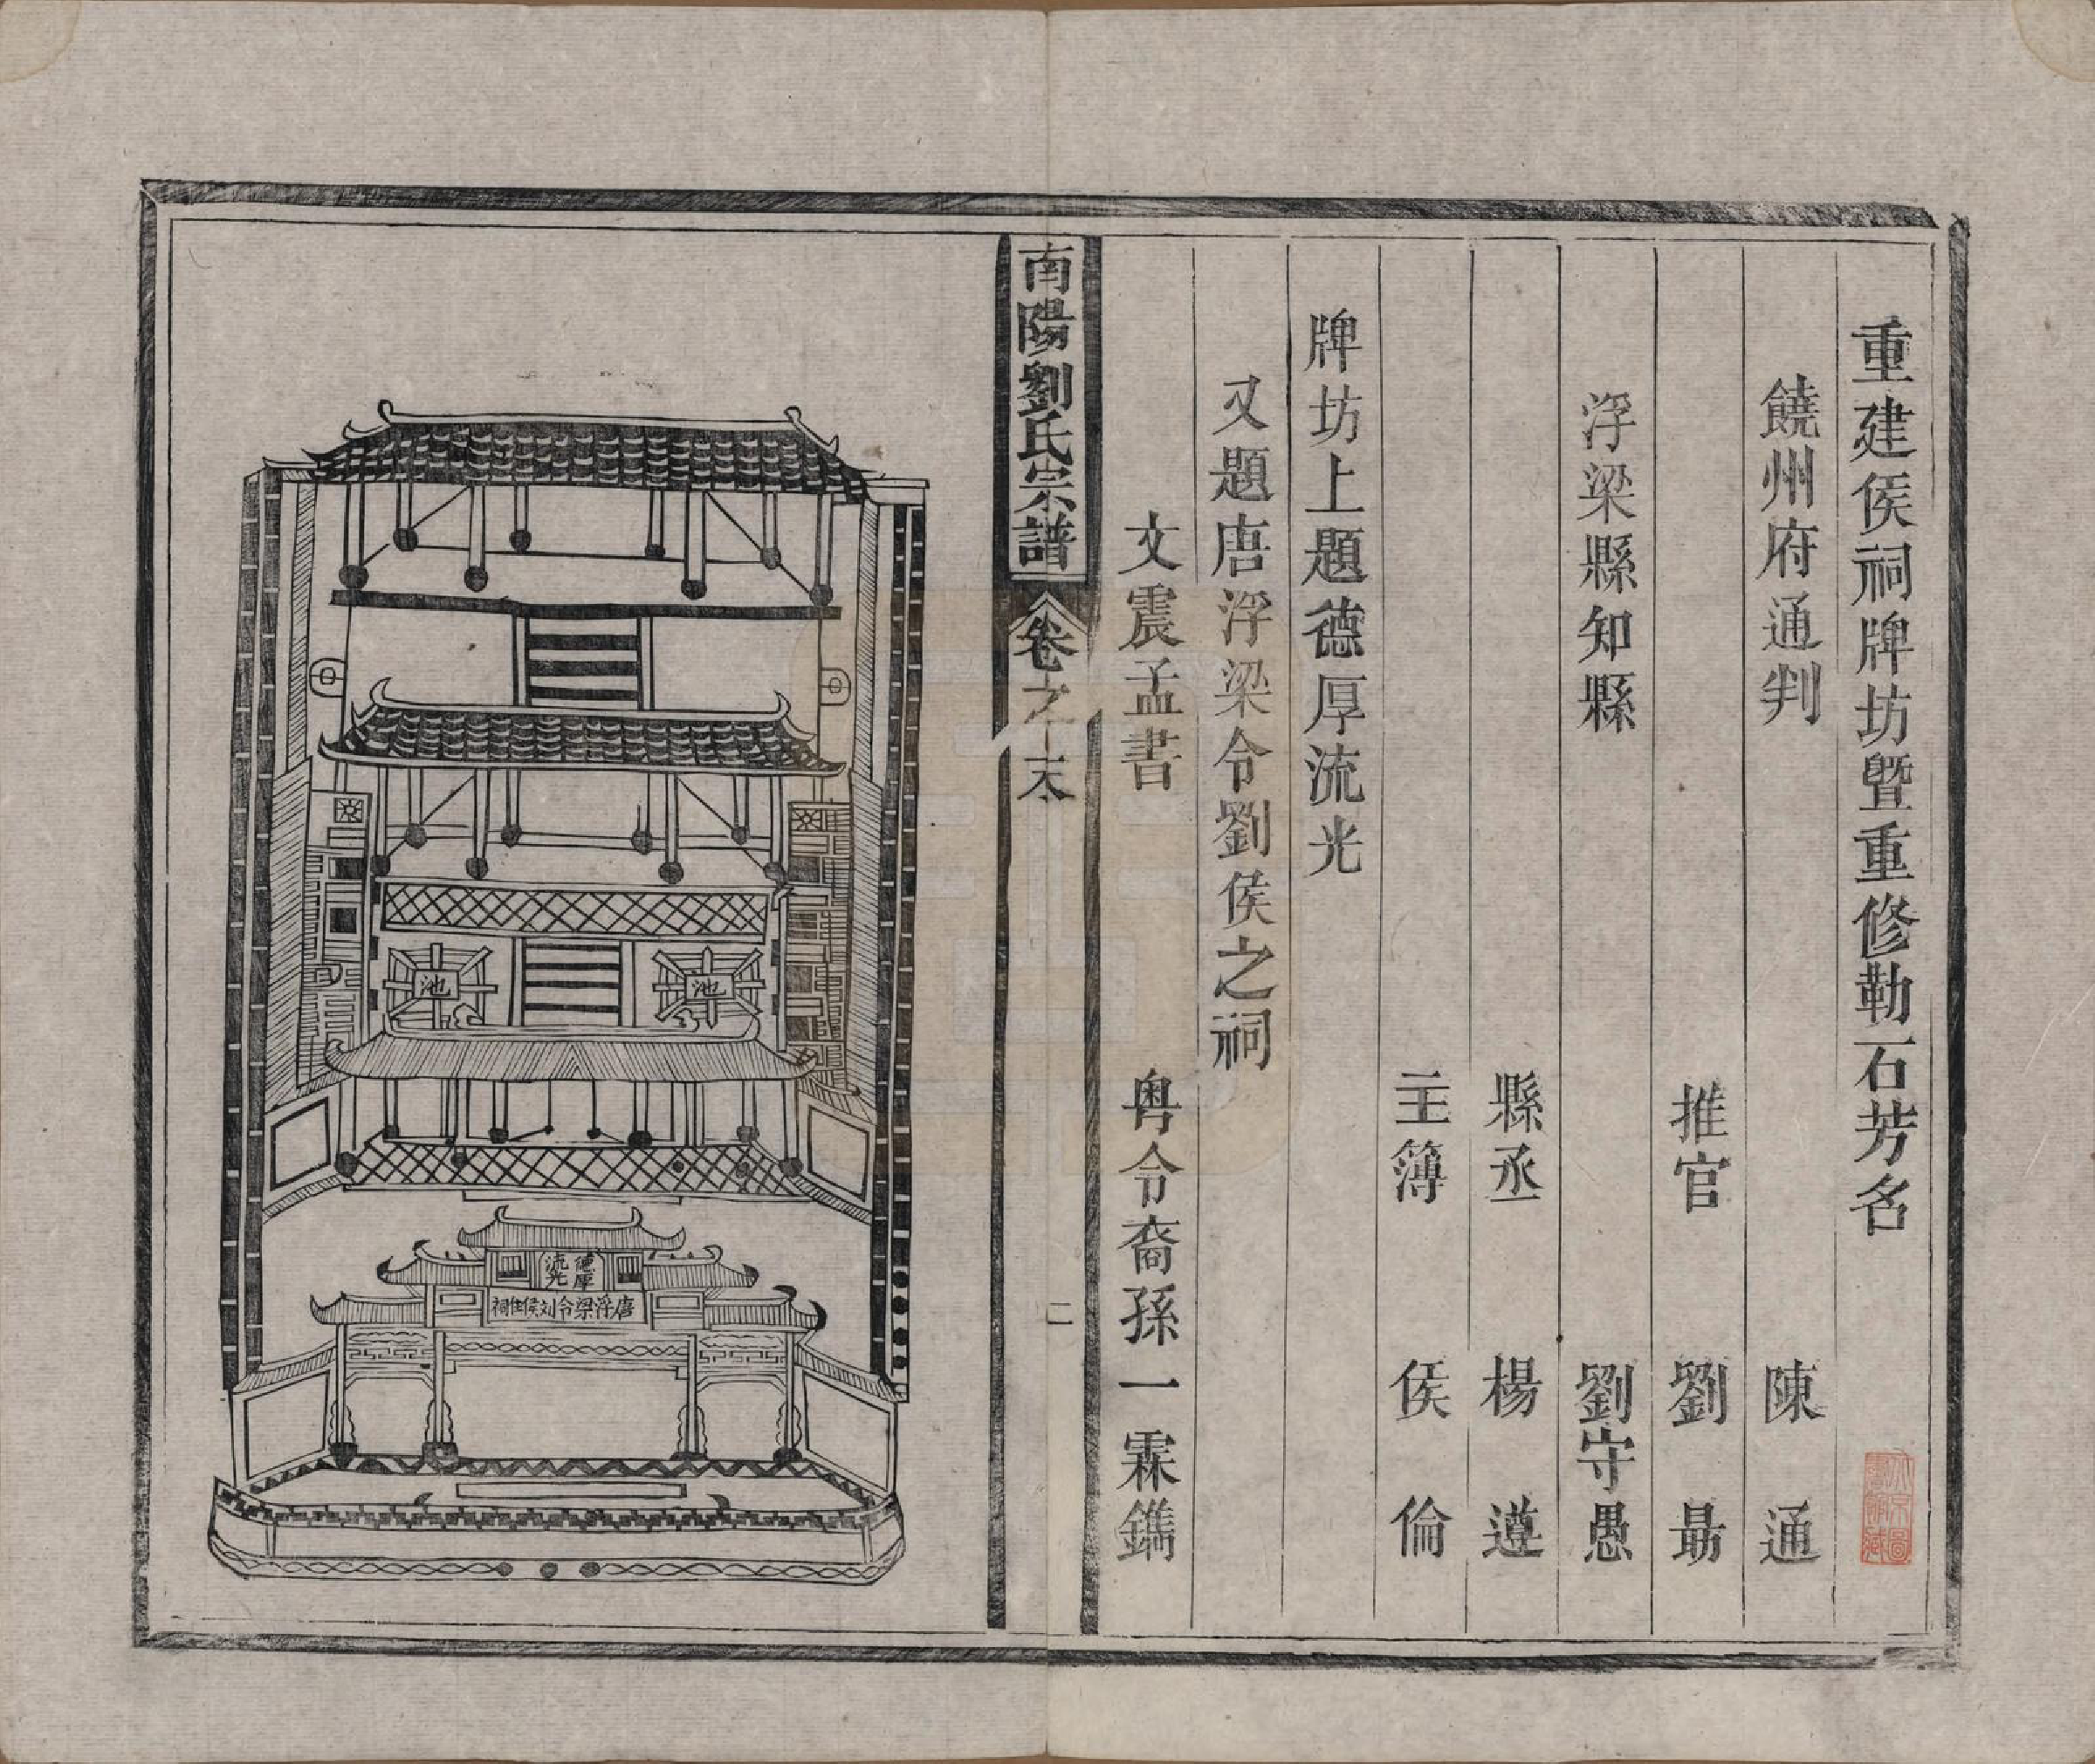 重建侯祠牌坊暨重修勒石芳名
饒州府通判 陳 通
推官 劉 最
浮梁縣知縣 劉守愚
縣丞 楊 遵
主簿 侯 倫
牌坊上題德厚流光
又題唐浮梁令劉侯之祠
文震孟書 粤令裔孫一霖鐫
南陽劉氏宗譜 卷之末
二
池
池
德厚
流光
唐浮梁令刘侯之祠